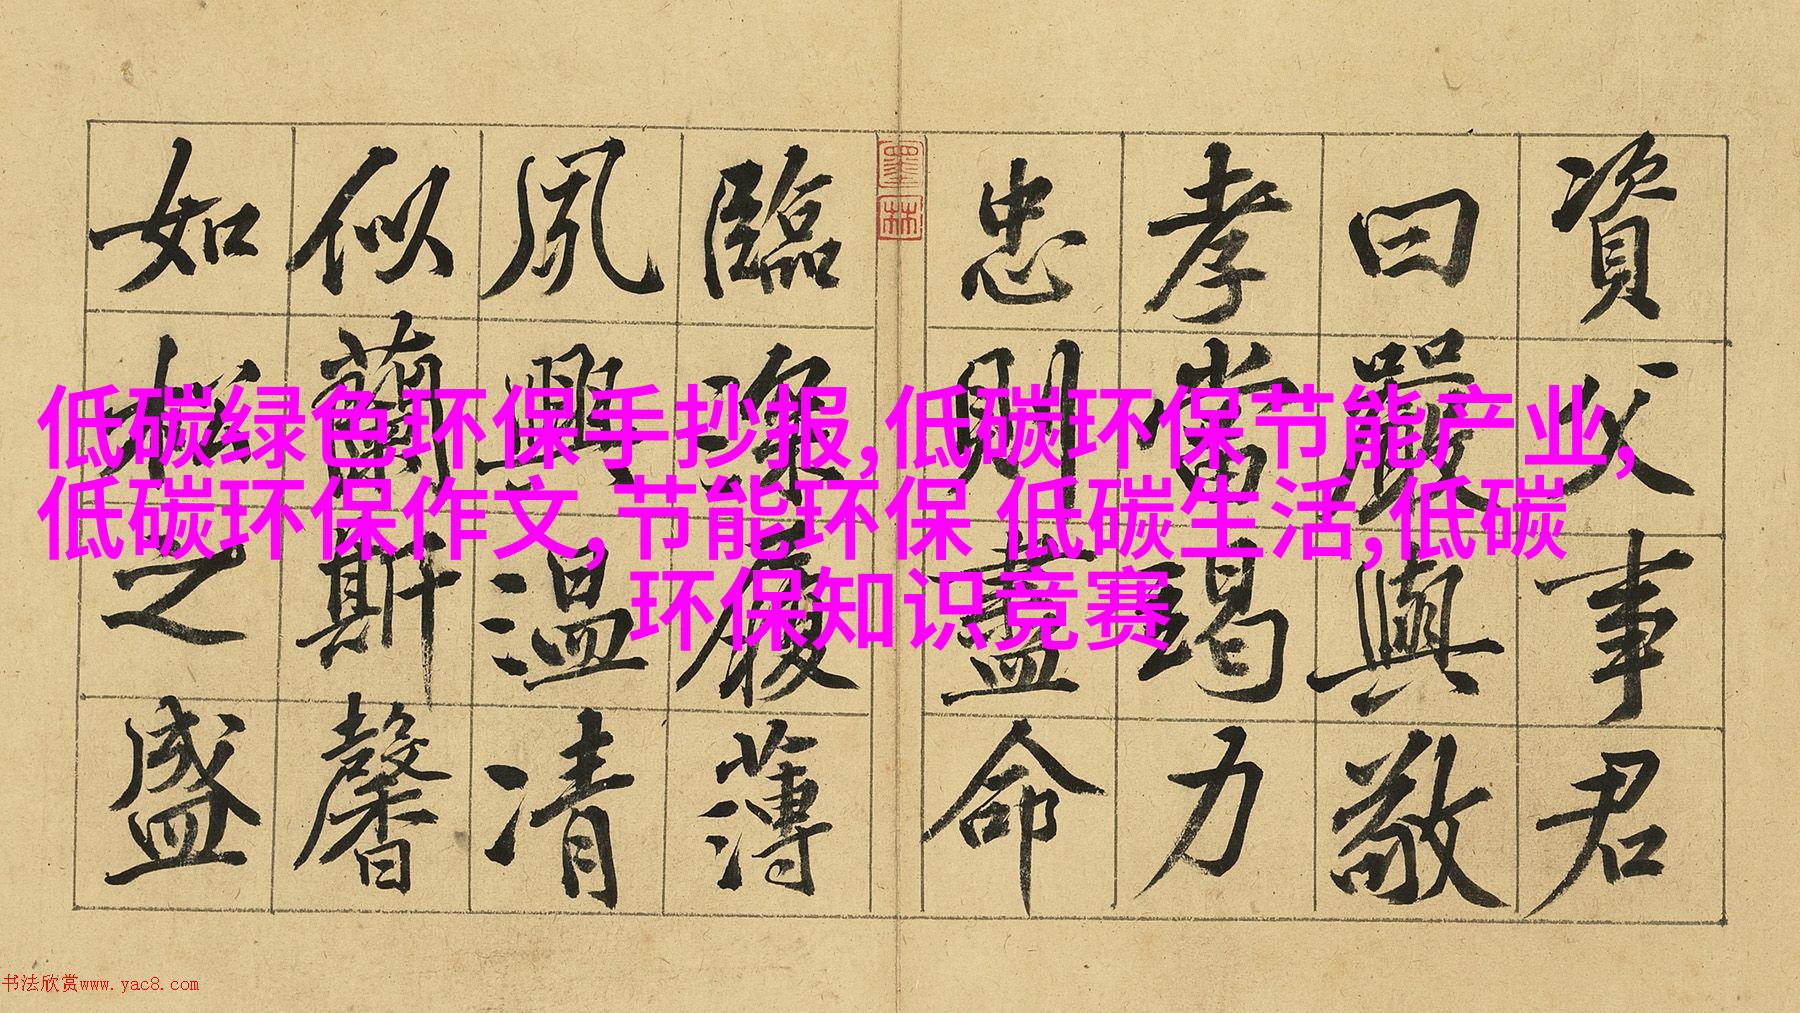 低碳绿色环保手抄报,低碳环保节能产业,
低碳环保作文,节能环保 低碳生活,低碳
环保知识竞赛
資父事君
曰嚴與敬
孝當竭力
忠則盡命
墨林
臨深履薄
夙興溫凊
似蘭斯馨
如松之盛
书法欣赏www.yac8.com